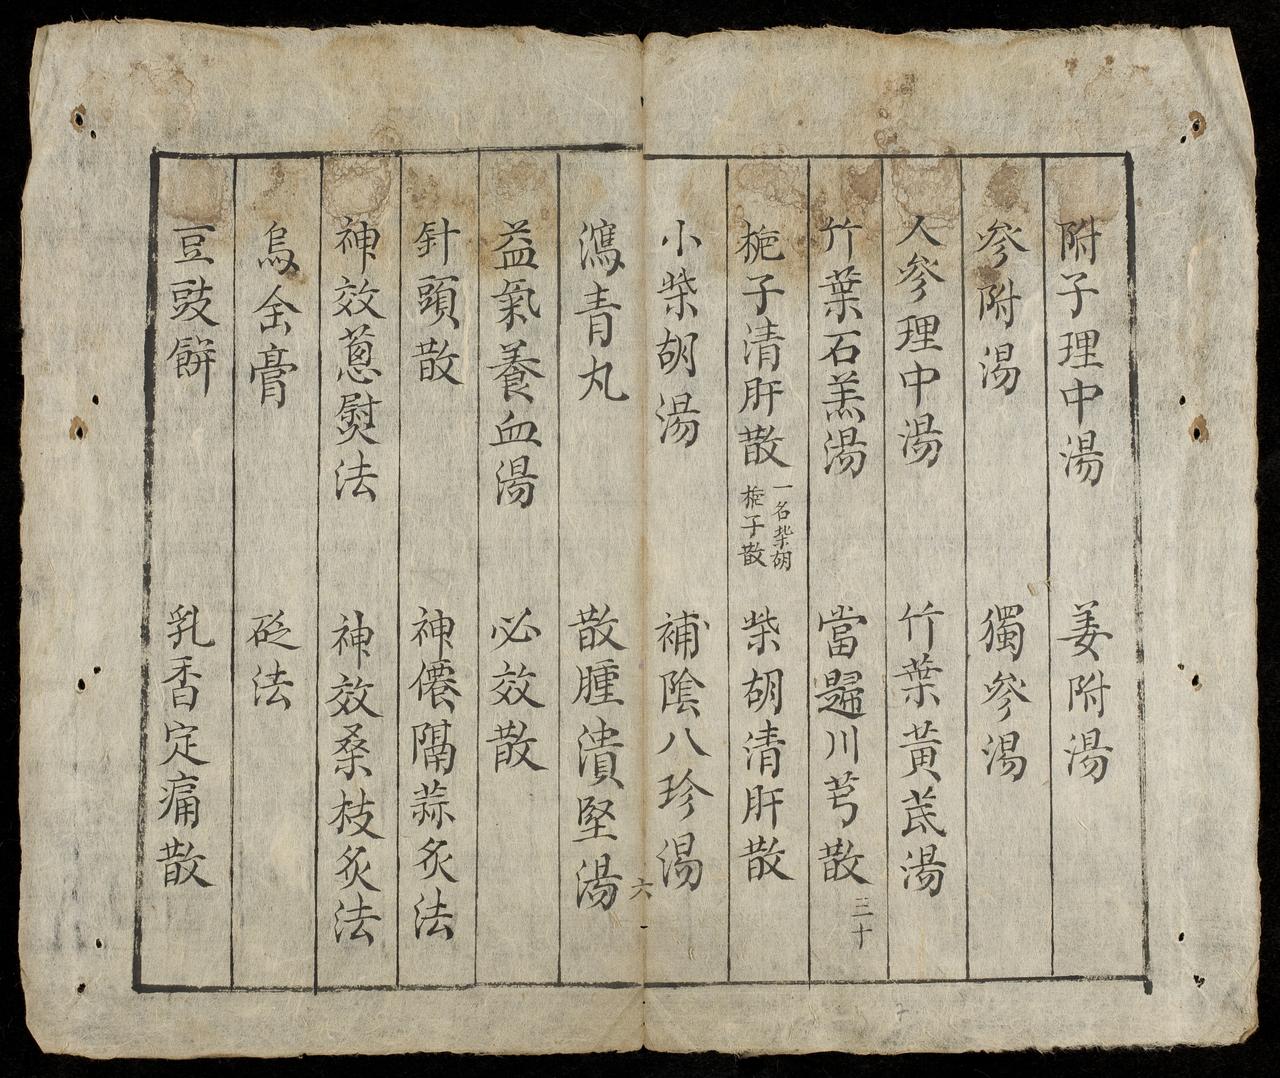 附子理中湯 姜附湯
參附湯 獨參湯
人參理中湯 竹葉黃茋湯
竹葉石羔湯 當歸川芎散 三十
梔子清肝散 一名柴胡梔子散 柴胡清肝散
小柴胡湯 補陰八珍湯
六
瀉青丸 散腫潰堅湯
益氣養血湯 必效散
針頭散 神僊隔蒜炙法
神效蔥熨法 神效桑枝炙法
烏金膏 砭法
豆豉餅 乳香定痛散